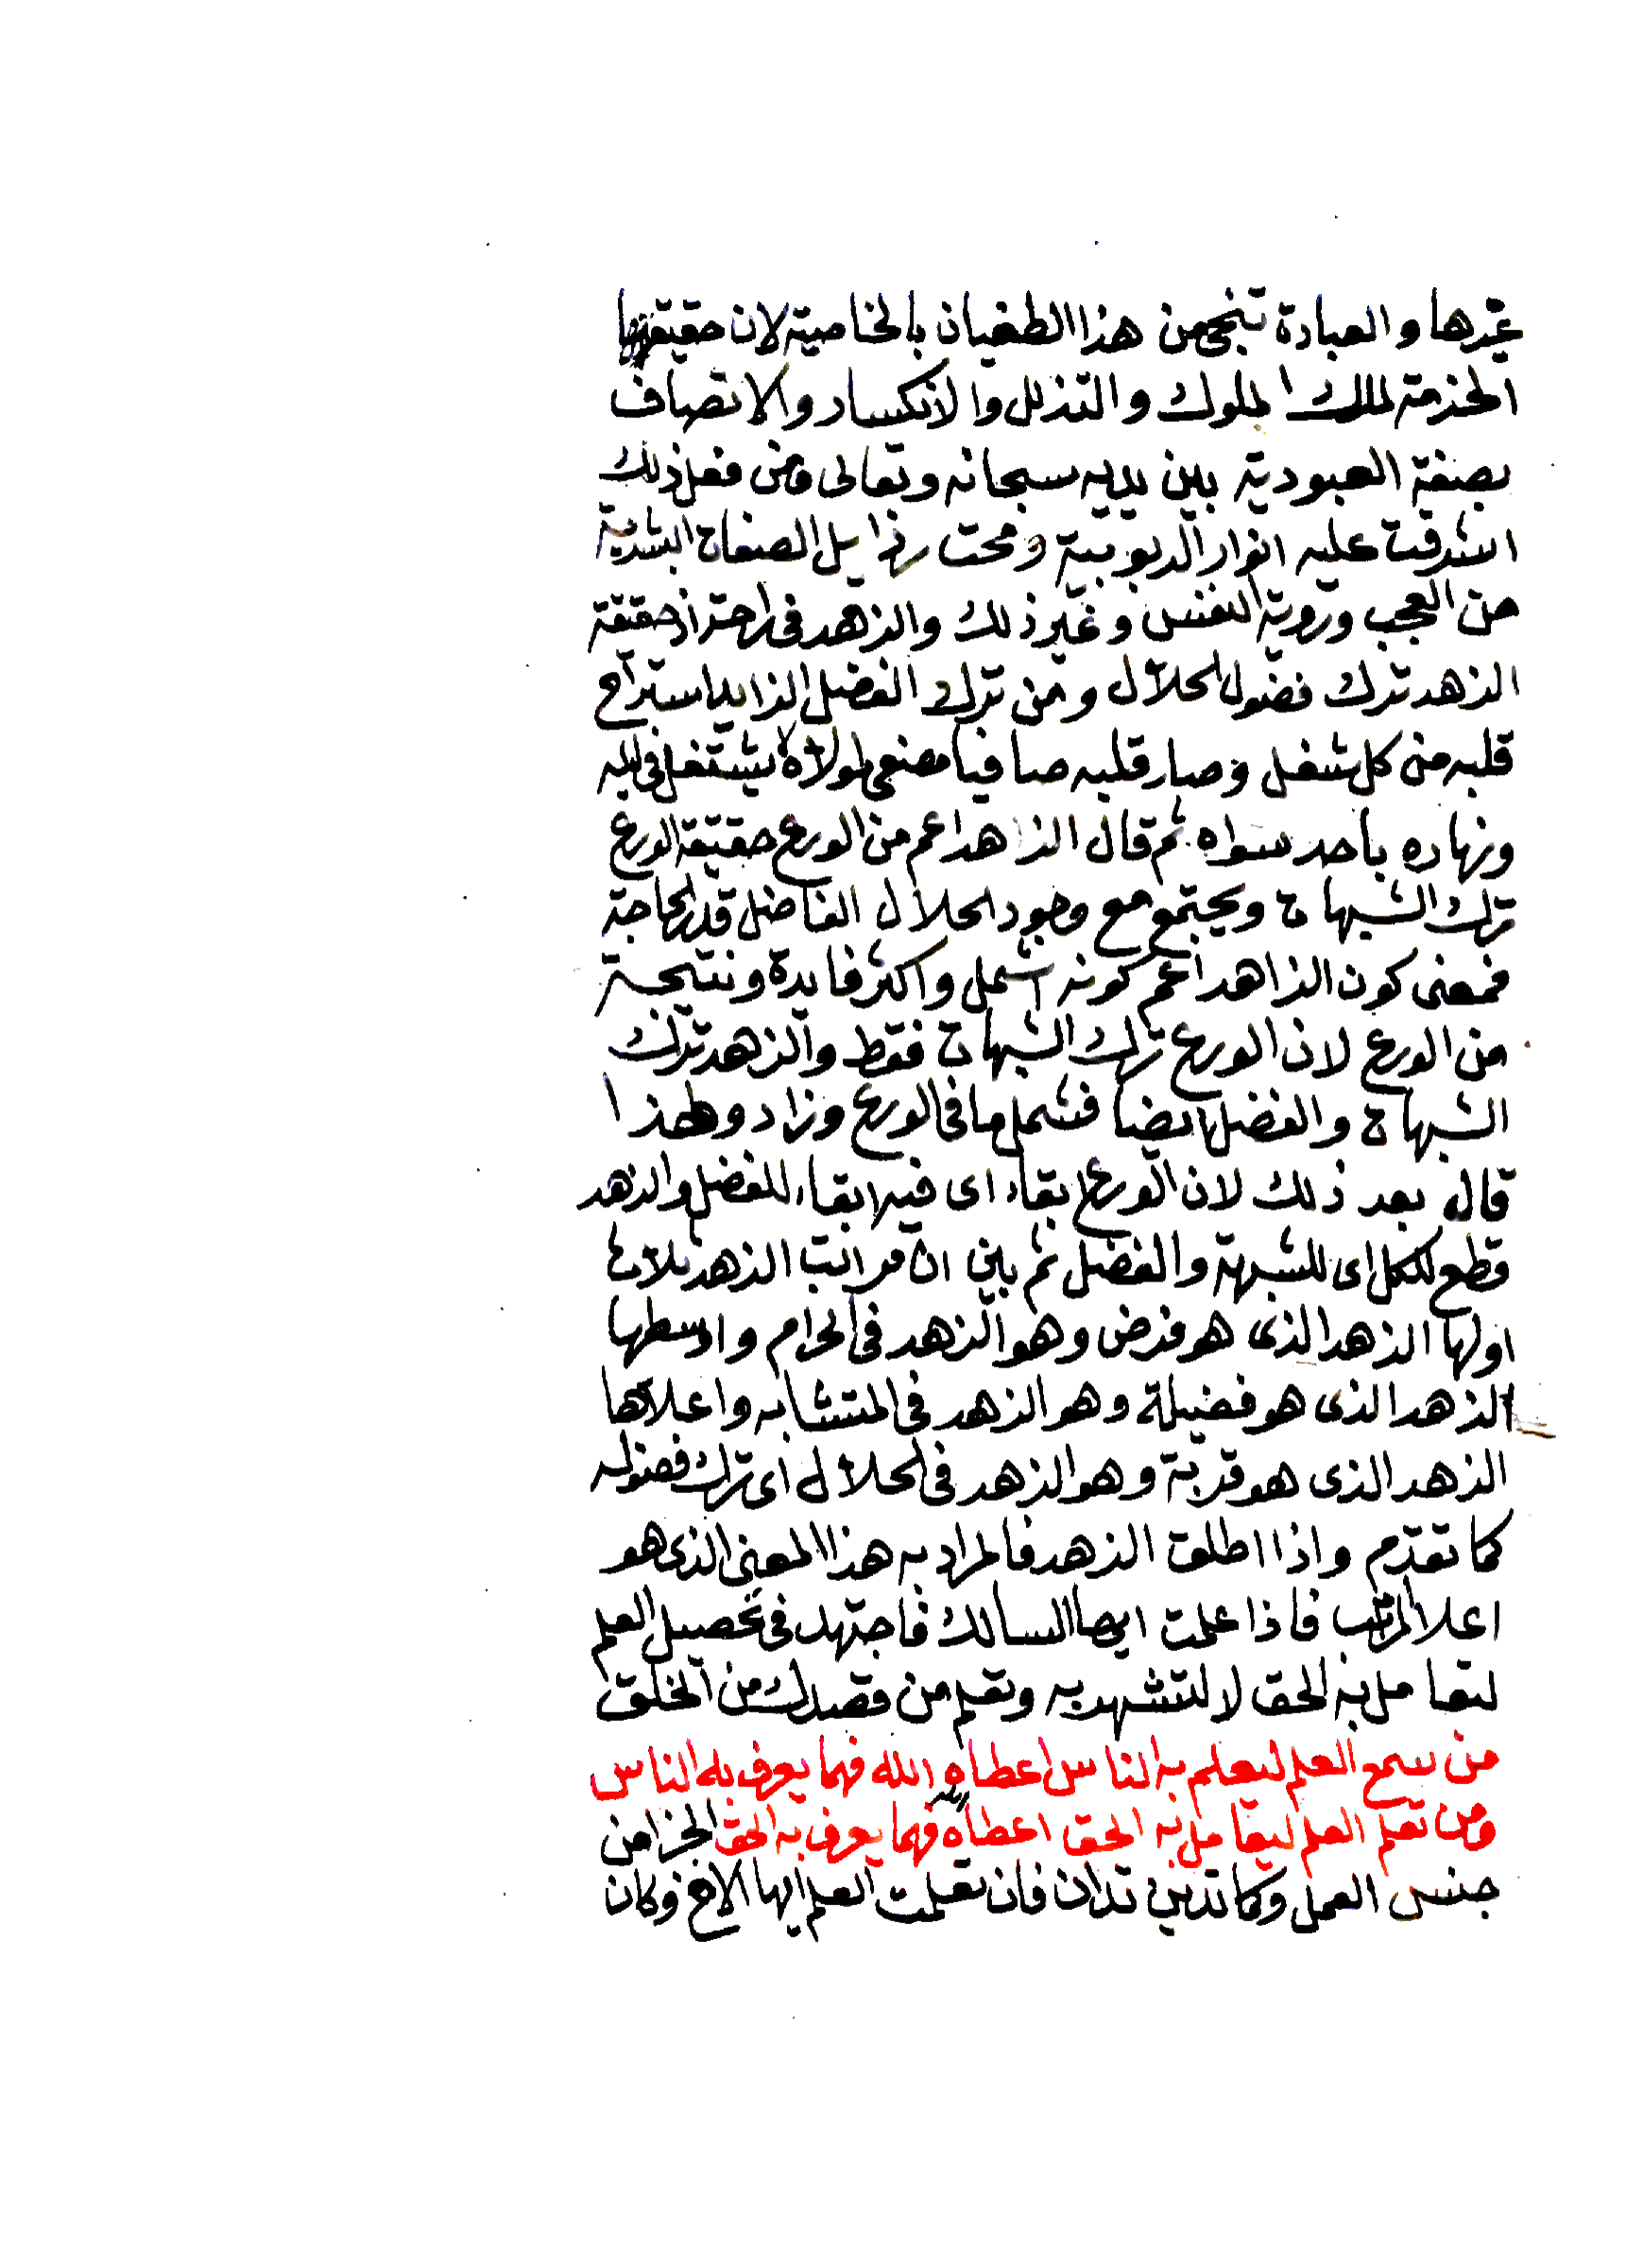 غيرها والعبادة تنجي من هذا الطغيان بالخاصية لان حقيقتها
الخدمة لملك الملوك والتذلل والانكسار والاتصاف
بصفة العبودية بين يديه سبحانه وتعالى ومن فعل ذلك
اشرقت عليه انوار الربوبية ومحت رذايل الصفات البشرية
من العجب وروية النفس وغير ذلك والزهد في راحة اذ حقيقة
الزهد ترك فضول الحلال ومن ترك الفضل الزايد استراح
قلبه من كل شغل وصار قلبه صافيا مصغي لمولاه لا يشتغل في ليله
ونهاره باحد سواه ثم قال الزاهد اعم من الورع حقيقة الورع
ترك الشبهات ويجتمع مع وجود الحلال الفاضل قدر الحاجة
فمعنى كون الزاهد اعم كونه اشمل واكثر فايدة ونتيجة
من الورع لان الورع ترك الشبهات فقط والزهد ترك
الشبهات والفضل ايضا فشمل ما في الورع وزاد ولهذا
قال بعد ذلك لان الورع ابقاء اى فيه ابقاء للفضل والزهد
قطع للكل اى للشبهة والفضل ثم بين ان مراتب الزهد ثلاث
اولها الزهد الذى هو فرض وهو الزهد في الحرام واوسطها
الزهد الذى هو فضيلة وهو الزهد في المتشابه واعلاها
الزهد الذى هو قربة وهو الزهد في الحلال اى ترك فضوله
كما تقدم واذا اطلق الزهد فالمراد به هذا المعنى الذى هو
اعلا المراتب فاذا علمت ايها السالك فاجتهد في تحصيل العلم
لتعامل به الحق لا لتشتهر به وتعلم من قصدك من الخلق
من سمع العلم ليعلم به الناس اعطاه الله فهما يعرف به الناس
ومن تعلم العلم ليعامل به الحق اعطاه الله فهما يعرف به الحق الجزا من
جنس العمل وكما تدين تدان فان تعلمت العلم ايها الاخ وكان